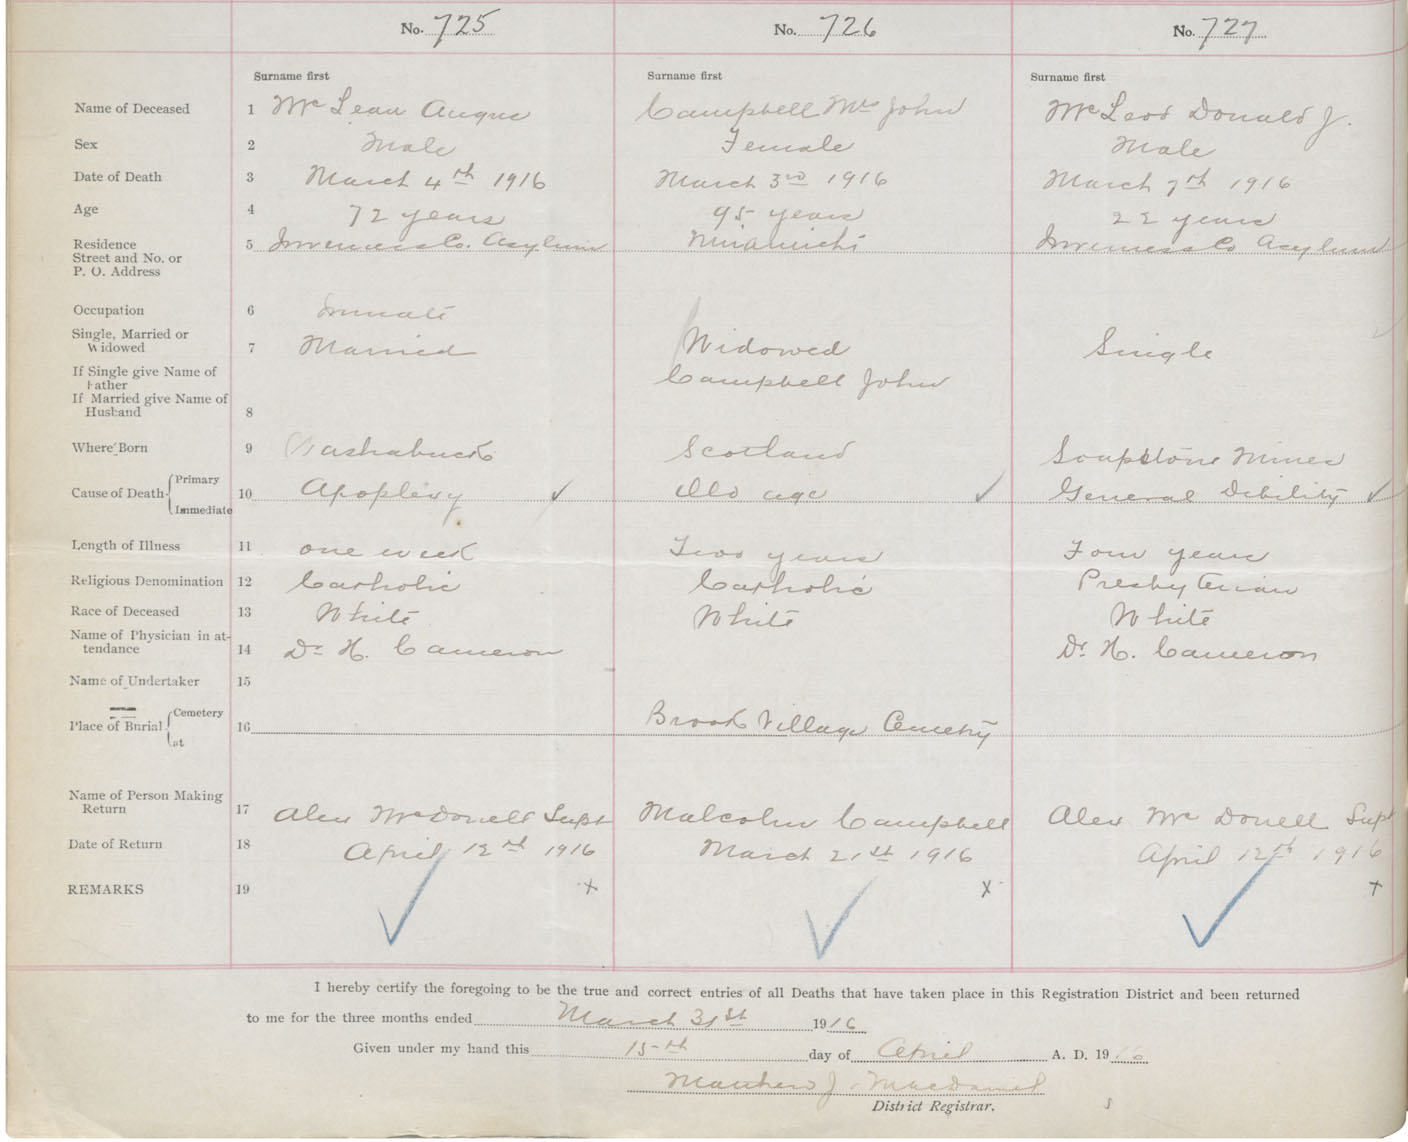 No. 725 No. 726 No. 727
Surname first Surname first Surname first
Name of Deceased 1 McLean Angus Campbell Mrs John McLeod Donald J.
Sex 2 Male Female Male
Date of Death 3 March 4th 1916 March 3rd 1916 March 7th 1916
Age 4 72 years 95 years 22 years
Residence 5 Inverness Co. Asylum Inverness Co Asylum
Street and No. or
P. O. Address
Occupation 6 Inmate
Single, Married or
Widowed 7 Married Widowed Single
If Single give Name of
Father Campbell John
If Married give Name of
Husband 8
Where Born 9 Washabuck Scotland Soapstone Mines
Cause of Death Primary 10 Apoplexy ✓ Old age ✓ General Dibility ✓
Immediate
Length of Illness 11 one week Two years Four years
Religious Denomination 12 Catholic Catholic Presbyterian
Race of Deceased 13 White White White
Name of Physician in at-
tendance 14 Dr H. Cameron Dr H. Cameron
Name of Undertaker 15
Place of Burial Cemetery 16 Brook Village Cemetry
at
Name of Person Making
Return 17 Alex McDonell Supt Malcolm Campbell Alex McDonell Supt
Date of Return 18 April 12th 1916 March 21st 1916 April 12th 1916
REMARKS 19 ✓ x ✓ x ✓ x
I hereby certify the foregoing to be the true and correct entries of all Deaths that have taken place in this Registration District and been returned
to me for the three months ended March 31st 1916
Given under my hand this 15th day of April A. D. 1916
Matthew J. MacDaniel
District Registrar.